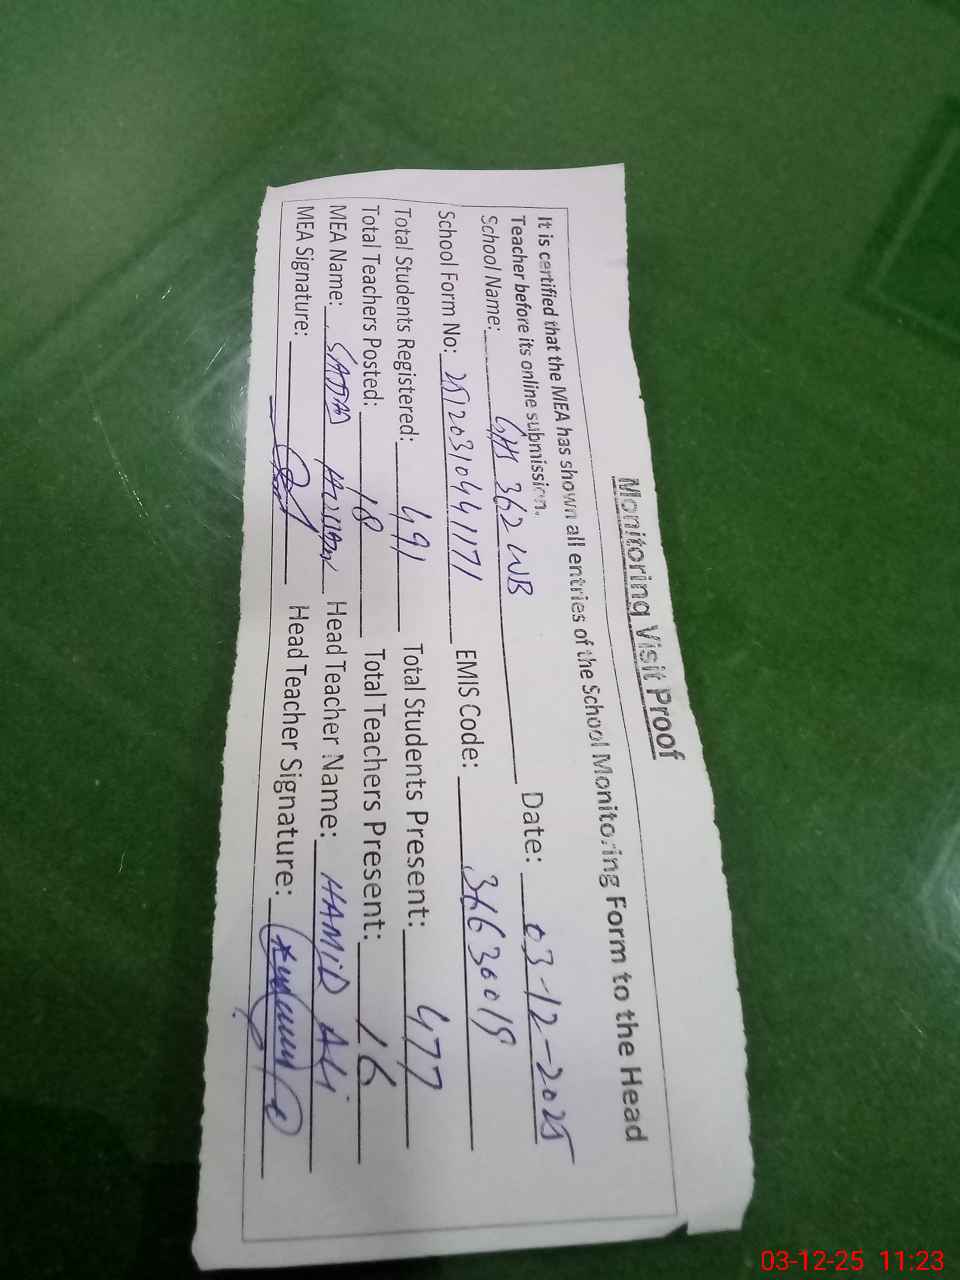 Monitoring Visit Proof
It is certified that the MEA has shown all entries of the School Monitoring Form to the Head
Teacher before its online submission.
School Name: GHS 362 WB Date: 03-12-2025
School Form No: 25120310441171 EMIS Code: 36630019
Total Students Registered: 491 Total Students Present: 477
Total Teachers Posted: 18 Total Teachers Present: 16
MEA Name: SAJJAD Hussain Head Teacher Name: HAMID ALi
MEA Signature: Head Teacher Signature:
03-12-25 11:23